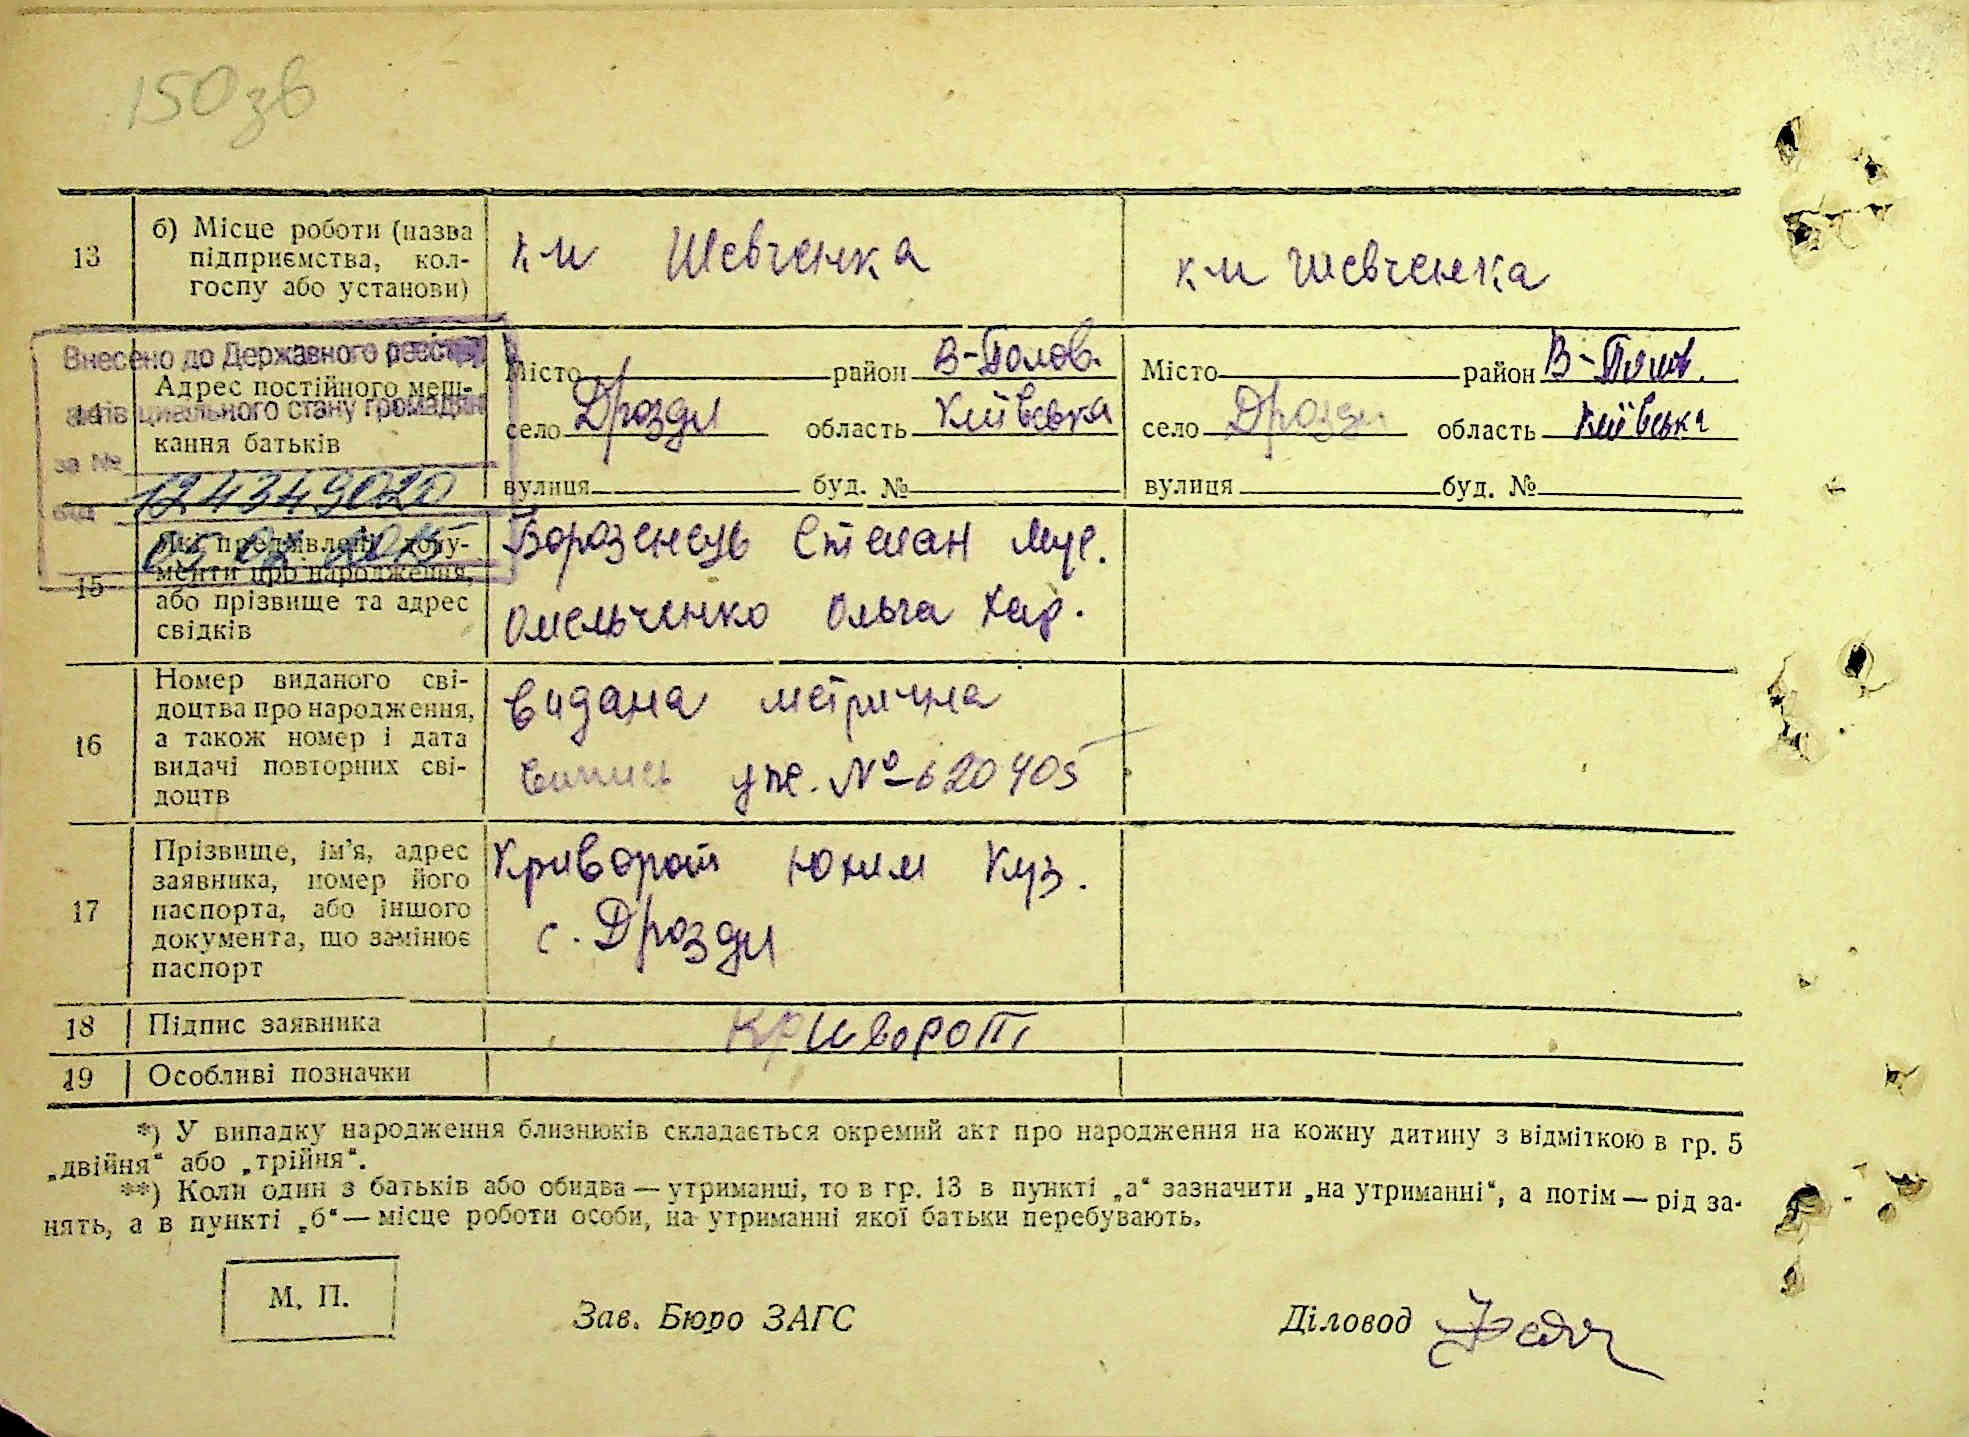 150зв
13
б) Місце роботи (назва
підприємства, кол-
госпу або установи)
к м Шевченка
к м Шевченка
Внесено до Державного реєстру
актів цивільного стану громадян
за №
124349020
від
14
Адрес постійного меш-
кання батьків
Місто район В-Полов.
село Дрозди область Київська
вулиця буд. №
Місто район В-Полов.
село Дрозди область Київська
вулиця буд. №
15
Які пред'явлені доку-
менти про народження,
або прізвище та адрес
свідків
Борозенець Степан Мус.
Омельченко Ольга Хар.
16
Номер виданого сві-
доцтва про народження,
а також номер і дата
видачі повторних сві-
доцтв
видана метрична
випись уже. № 620405
17
Прізвище, ім'я, адрес
заявника, номер його
паспорта, або іншого
документа, що замінює
паспорт
Криворот Юхим Куз.
с. Дрозди
18
Підпис заявника
Криворот
19
Особливі позначки
*) У випадку народження близнюків складається окремий акт про народження на кожну дитину з відміткою в гр. 5
„двійня“ або „трійня“.
**) Коли один з батьків або обидва — утриманці, то в гр. 13 в пункті „а“ зазначити „на утриманні“, а потім — рід за-
нять, а в пункті „б“ — місце роботи особи, на утриманні якої батьки перебувають.
М. П.
Зав. Бюро ЗАГС
Діловод